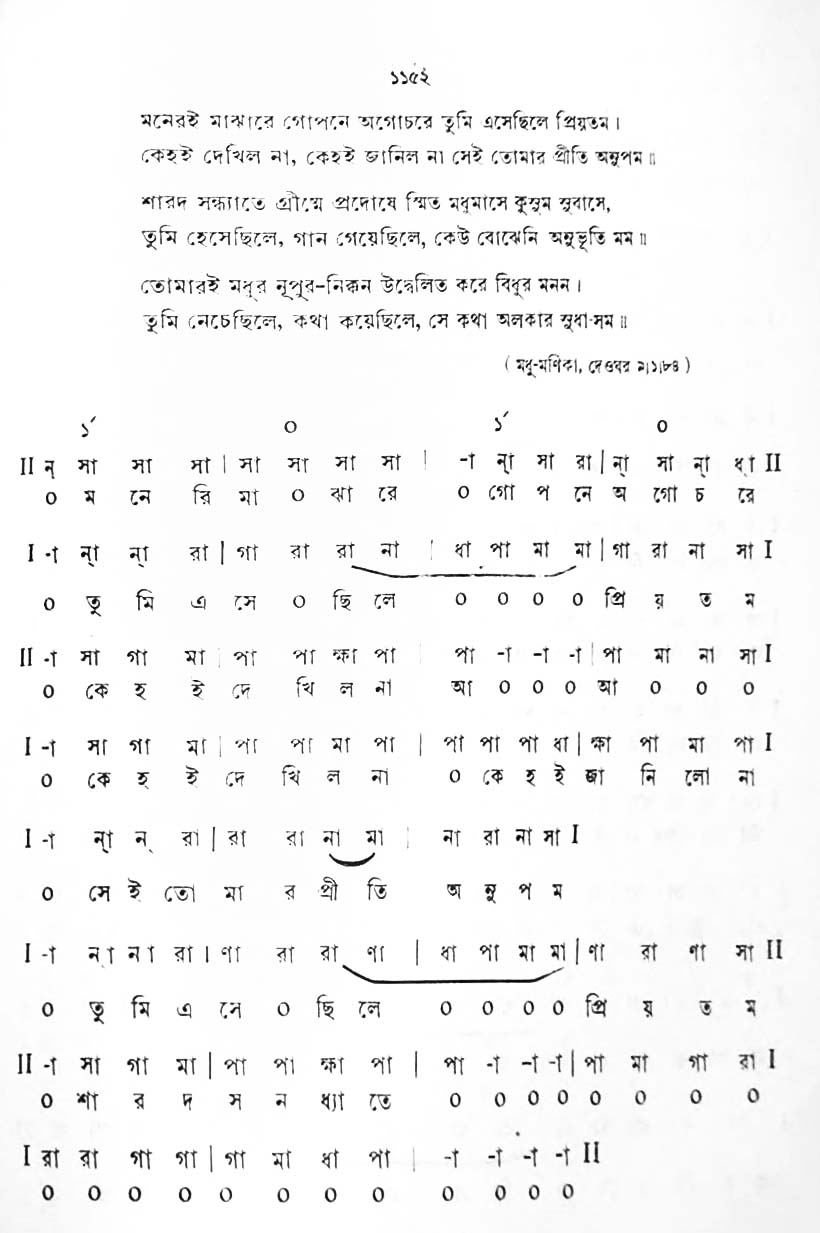 ১১৫২
মনেরই মাঝারে গোপনে অগোচরে তুমি এসেছিলে প্রিয়তম।
কেহই দেখিল না, কেহই জানিল না সেই তোমার প্রীতি অনুপম॥
শারদ সন্ধ্যাতে গ্রীষ্মে প্রদোষে স্মিত মধুমাসে কুসুম সুবাসে,
তুমি হেসেছিলে, গান গেয়েছিলে, কেউ বোঝেনি অনুভূতি মম॥
তোমারই মধুর নূপুর-নিক্কন উদ্বেলিত করে বিধুর মনন।
তুমি নেচেছিলে, কথা কয়েছিলে, সে কথা অলকার সুধা-সম॥
( মধু-মণিকা, দেওঘর ৯।১।৮৪ )
১´ ০ ১´ ০
II ন্ সা সা সা | সা সা সা সা | -া ন্া সা রা | ন্া সা ন্া ধ্া II
০ ম নে রি মা ০ ঝা রে ০ গো প নে অ গো চ রে
I -া ন্া ন্া রা | গা রা রা না | ধা পা মা মা | গা রা না সা I
০ তু মি এ সে ০ ছি লে ০ ০ ০ ০ প্রি য় ত ম
II -া সা গা মা | পা পা ক্ষা পা | পা -া -া -া | পা মা না সা I
০ কে হ ই দে খি ল না আ ০ ০ ০ আ ০ ০ ০
I -া সা গা মা | পা পা মা পা | পা পা পা ধা | ক্ষা পা মা পা I
০ কে হ ই দে খি ল না ০ কে হ ই জা নি লো না
I -া ন্া ন্ রা | রা রা না মা | না রা না সা I
০ সে ই তো মা র প্রী তি অ নু প ম
I -া ন া ন া রা । ণা রা রা ণা | ধা পা মা মা | ণা রা ণা সা II
০ তু মি এ সে ০ ছি লে ০ ০ ০ ০ প্রি য় ত ম
II -া সা গা মা | পা পা ক্ষা পা | পা -া -া -া | পা মা গা রা I
০ শা র দ স ন ধ্যা তে ০ ০ ০ ০ ০ ০ ০ ০
I রা রা গা গা | গা মা ধা পা | -া -া -া -া II
০ ০ ০ ০ ০ ০ ০ ০ ০ ০ ০ ০